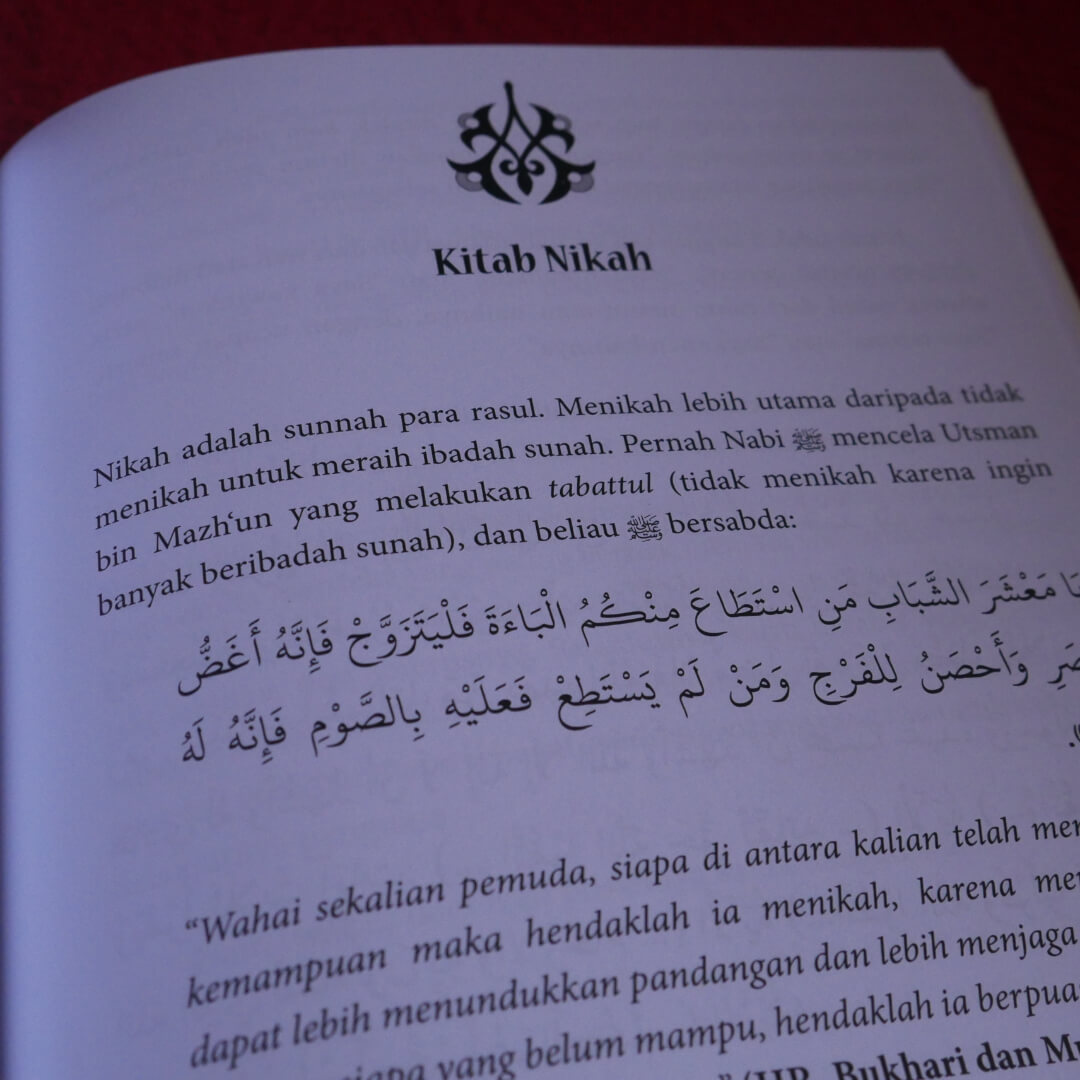 Kitab Nikah
Nikah adalah sunnah para rasul. Menikah lebih utama daripada tidak
menikah untuk meraih ibadah sunah. Pernah Nabi ﷺ mencela Utsman
bin Mazh‘un yang melakukan tabattul (tidak menikah karena ingin
banyak beribadah sunah), dan beliau ﷺ bersabda:
مَعْشَرَ الشَّبَابِ مَنِ اسْتَطَاعَ مِنْكُمُ الْبَاءَةَ فَلْيَتَزَوَّجْ فَإِنَّهُ أَغَضُّ
وَأَحْصَنُ لِلْفَرْجِ وَمَنْ لَمْ يَسْتَطِعْ فَعَلَيْهِ بِالصَّوْمِ فَإِنَّهُ لَهُ
“Wahai sekalian pemuda, siapa di antara kalian telah
kemampuan maka hendaklah ia menikah, karena
dapat lebih menundukkan pandangan dan lebih menjaga
yang belum mampu, hendaklah ia
Bukhari dan